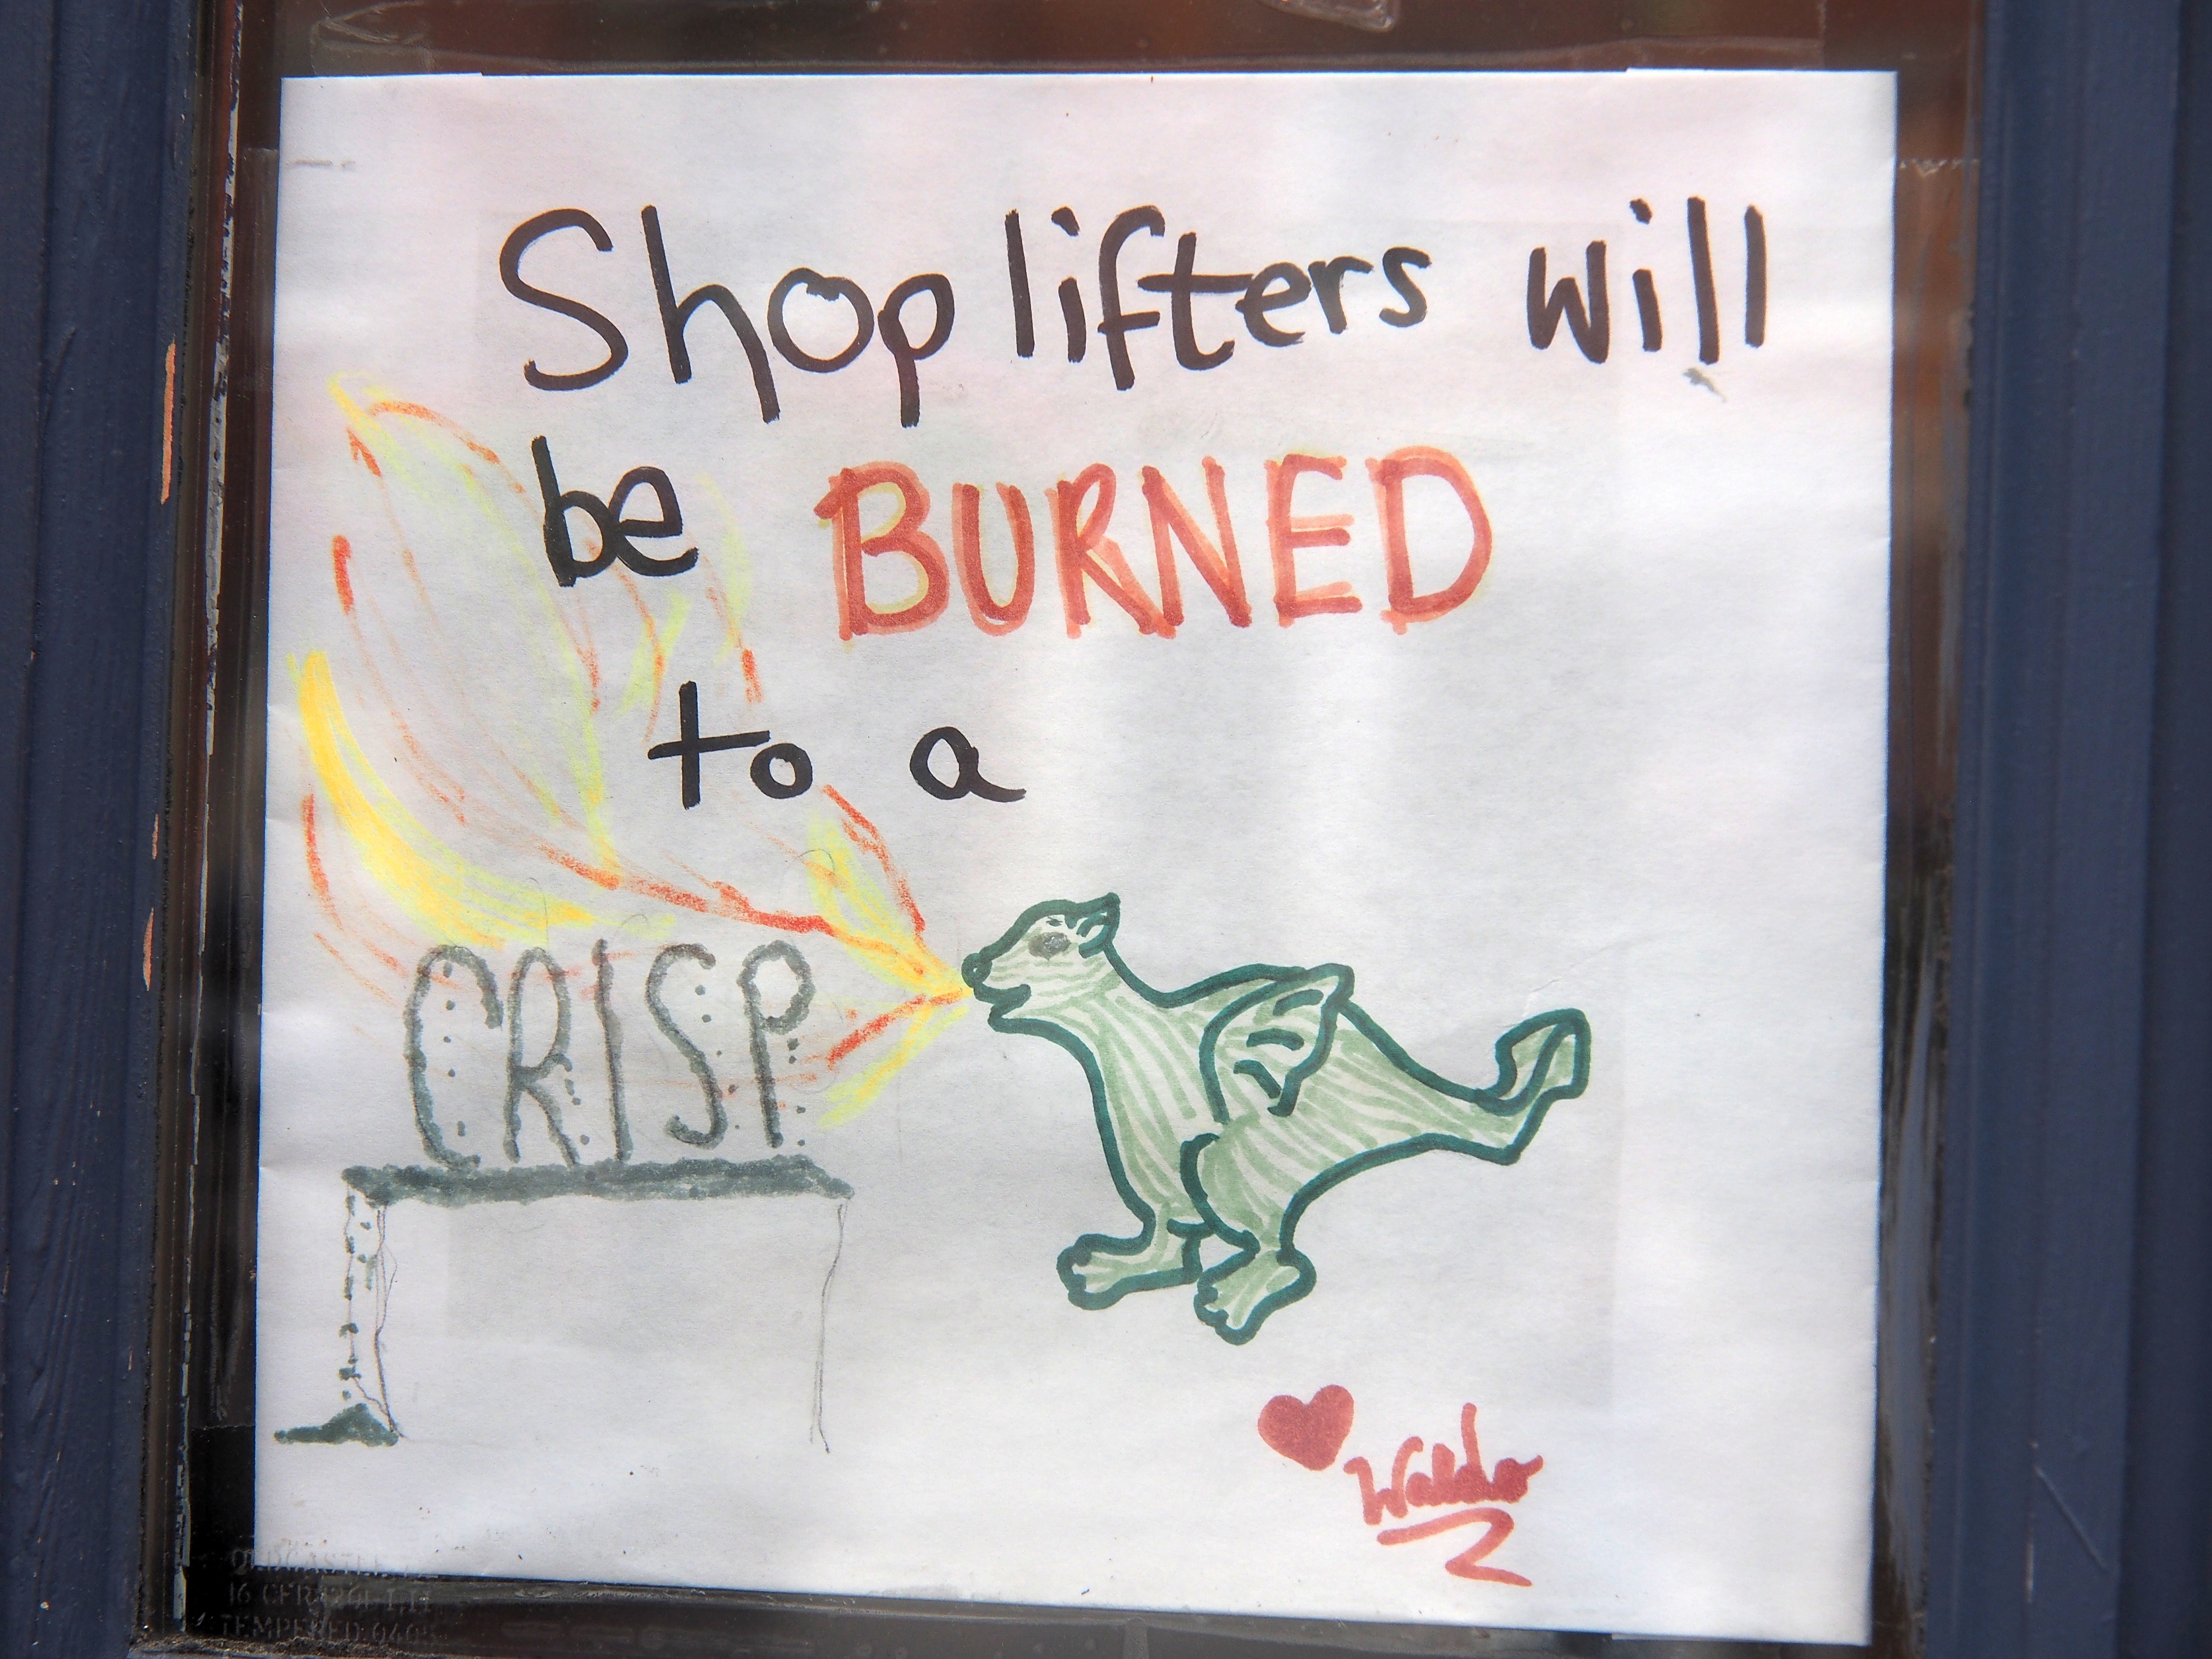 Shop lifters will
be BURNED
to a
CRISP
Waldo
TEMPERED